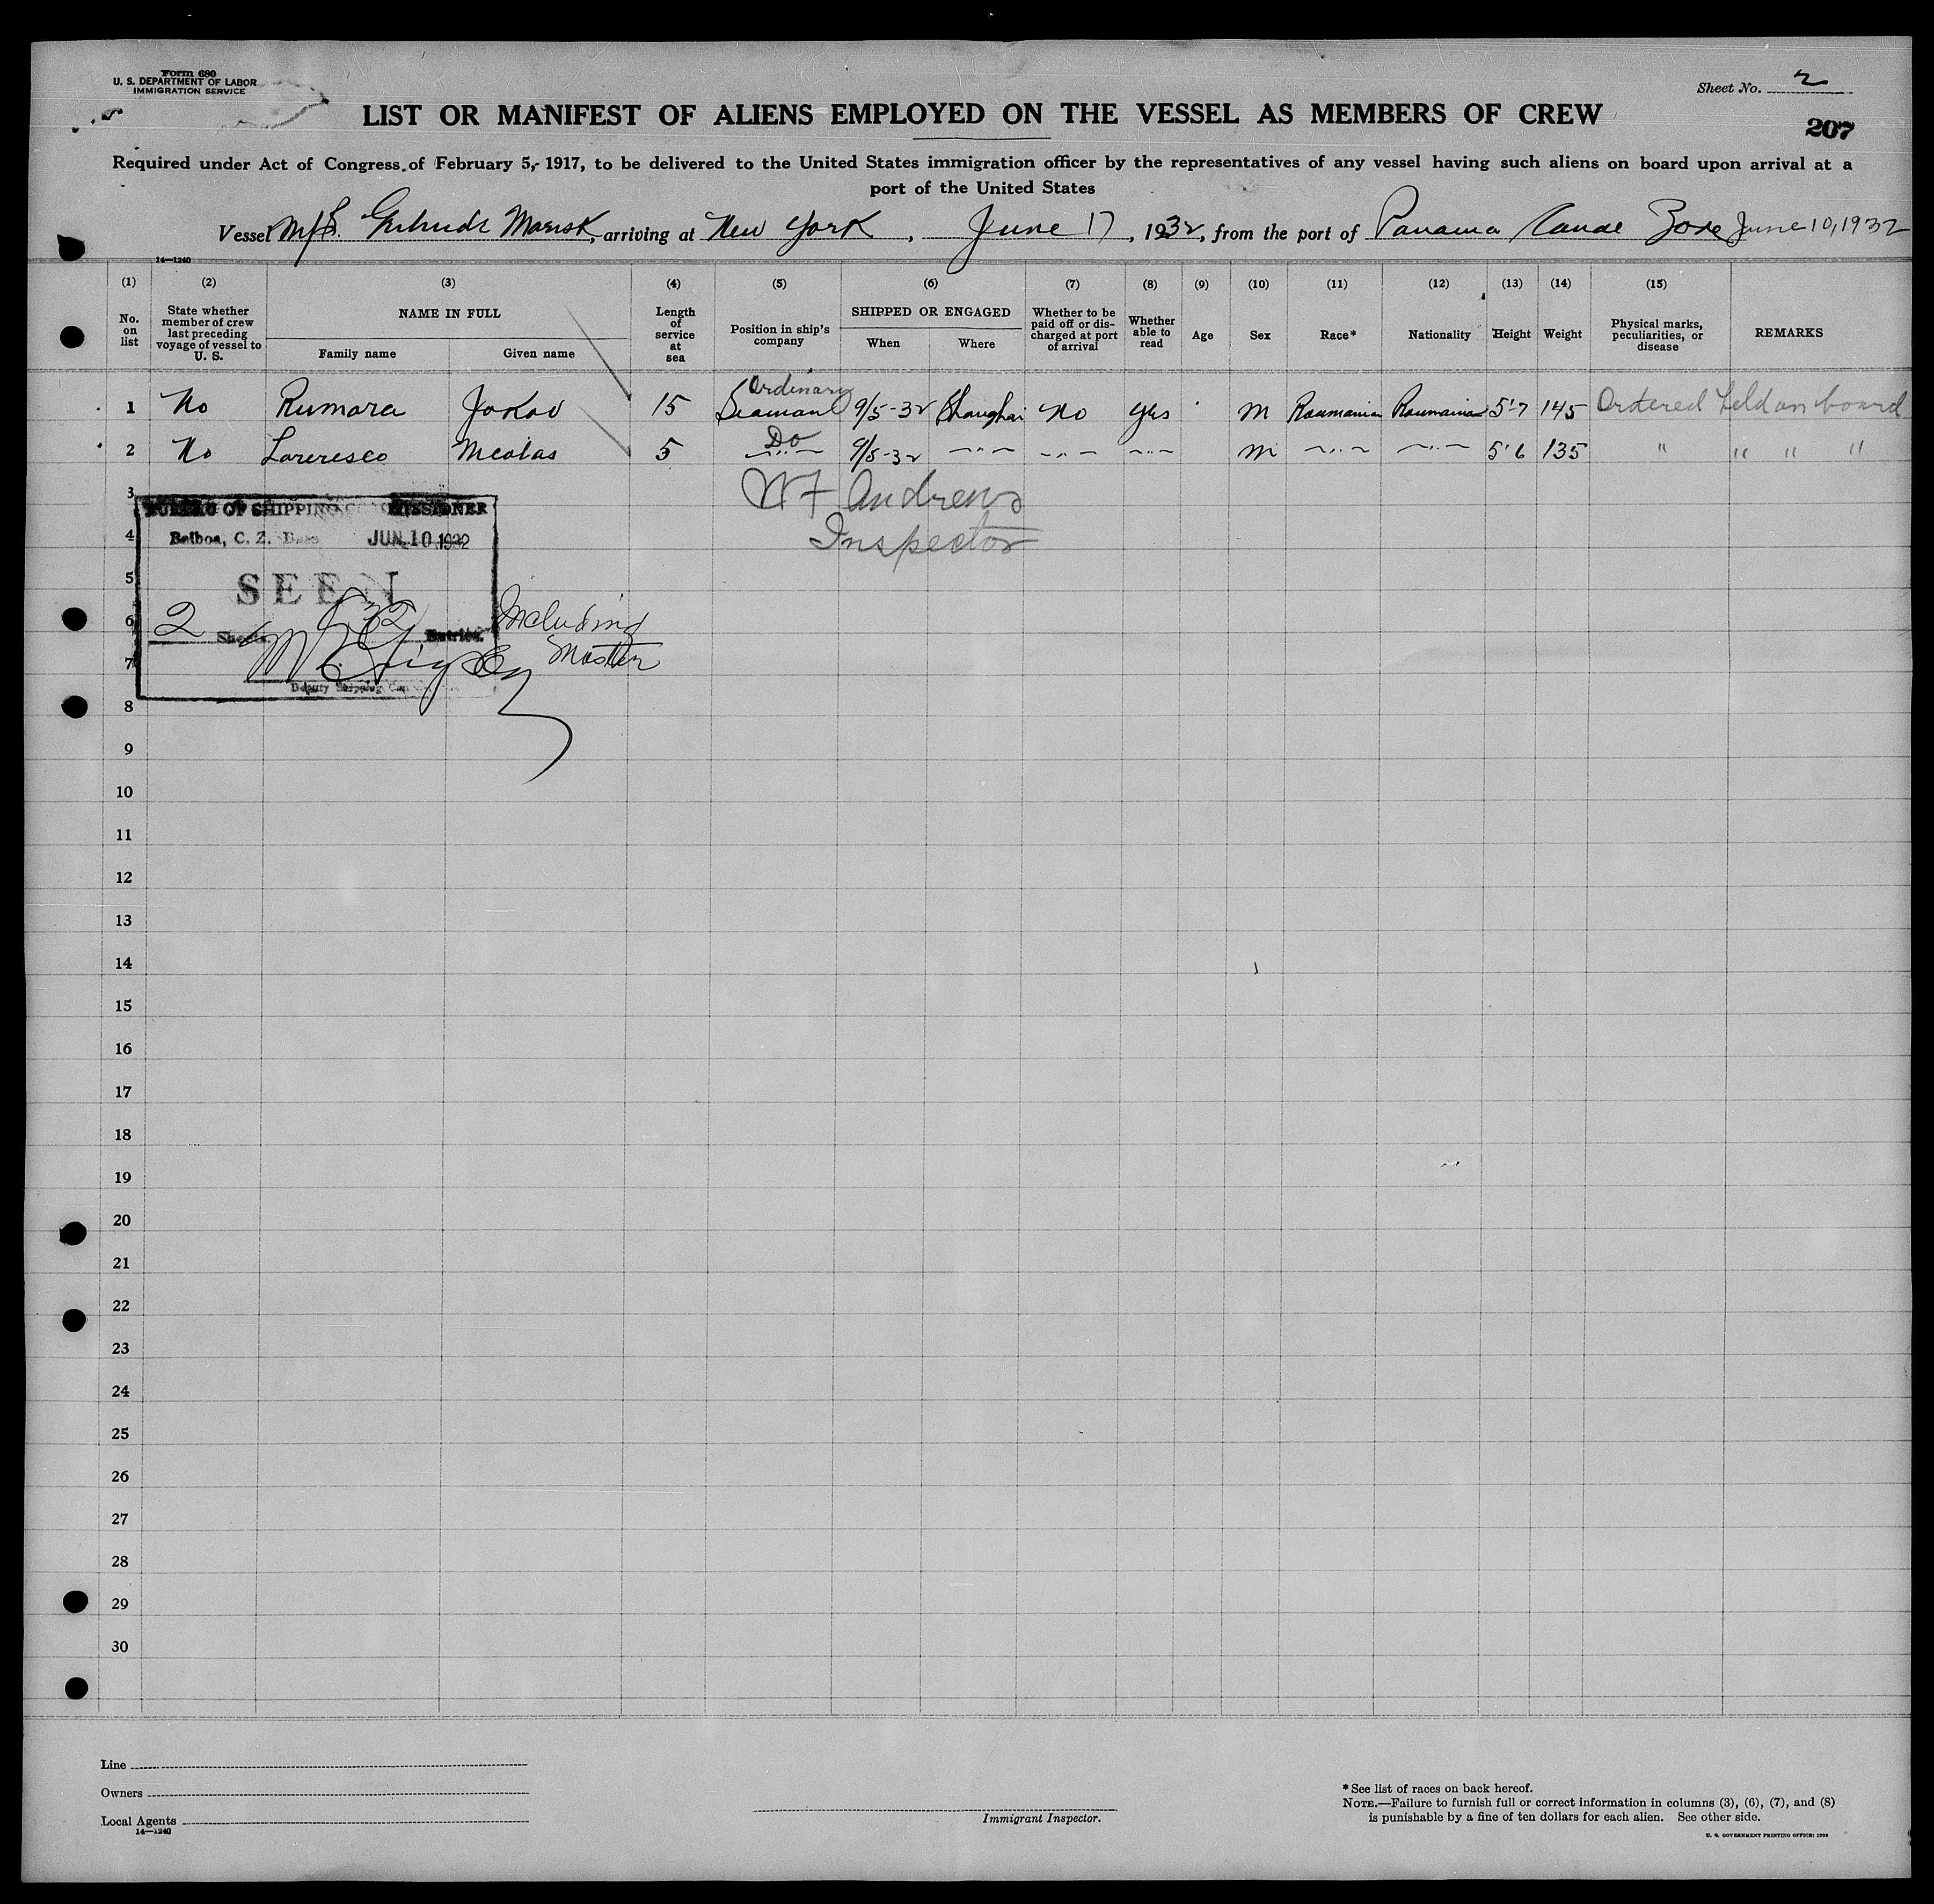 Form 680
U. S. DEPARTMENT OF LABOR
IMMIGRATION SERVICE
Sheet No. 2
LIST OR MANIFEST OF ALIENS EMPLOYED ON THE VESSEL AS MEMBERS OF CREW
207
Required under Act of Congress of February 5, 1917, to be delivered to the United States immigration officer by the representatives of any vessel having such aliens on board upon arrival at a
port of the United States
Vessel M/S. Gertrude Maersk, arriving at New York, June 17, 1932, from the port of Panama Canal Zone June 10, 1932
14—1240
(1) (2) (3) (4) (5) (6) (7) (8) (9) (10) (11) (12) (13) (14) (15)
No. on list
State whether member of crew last preceding voyage of vessel to U. S.
NAME IN FULL
Family name Given name
Length of service at sea
Position in ship's company
SHIPPED OR ENGAGED
When Where
Whether to be paid off or discharged at port of arrival
Whether able to read
Age
Sex
Race*
Nationality
Height
Weight
Physical marks, peculiarities, or disease
REMARKS
1 No Rumora Jakov 15 Ordinary Seaman 9/5-32 Shanghai No Yes M Roumanian Roumanian 5'7 145 Ordered held on board
2 No Nicolas 5 Do 9/5-32 —"— —"— —"— M —"— —"— 5'6 135 " " " "
3
W F Andrews
Inspector
BUREAU OF SHIPPING COMMISSIONER
4
Balboa, C. Z. JUN 10 1932
5
SEEN
6
2 Sheets. 32 Entries. Including
Master
7
Deputy Shipping
8
9
10
11
12
13
14
15
16
17
18
19
20
21
22
23
24
25
26
27
28
29
30
Line
Owners
Local Agents
14—1240
Immigrant Inspector.
*See list of races on back hereof.
NOTE.—Failure to furnish full or correct information in columns (3), (6), (7), and (8)
is punishable by a fine of ten dollars for each alien. See other side.
U. S. GOVERNMENT PRINTING OFFICE: 1929